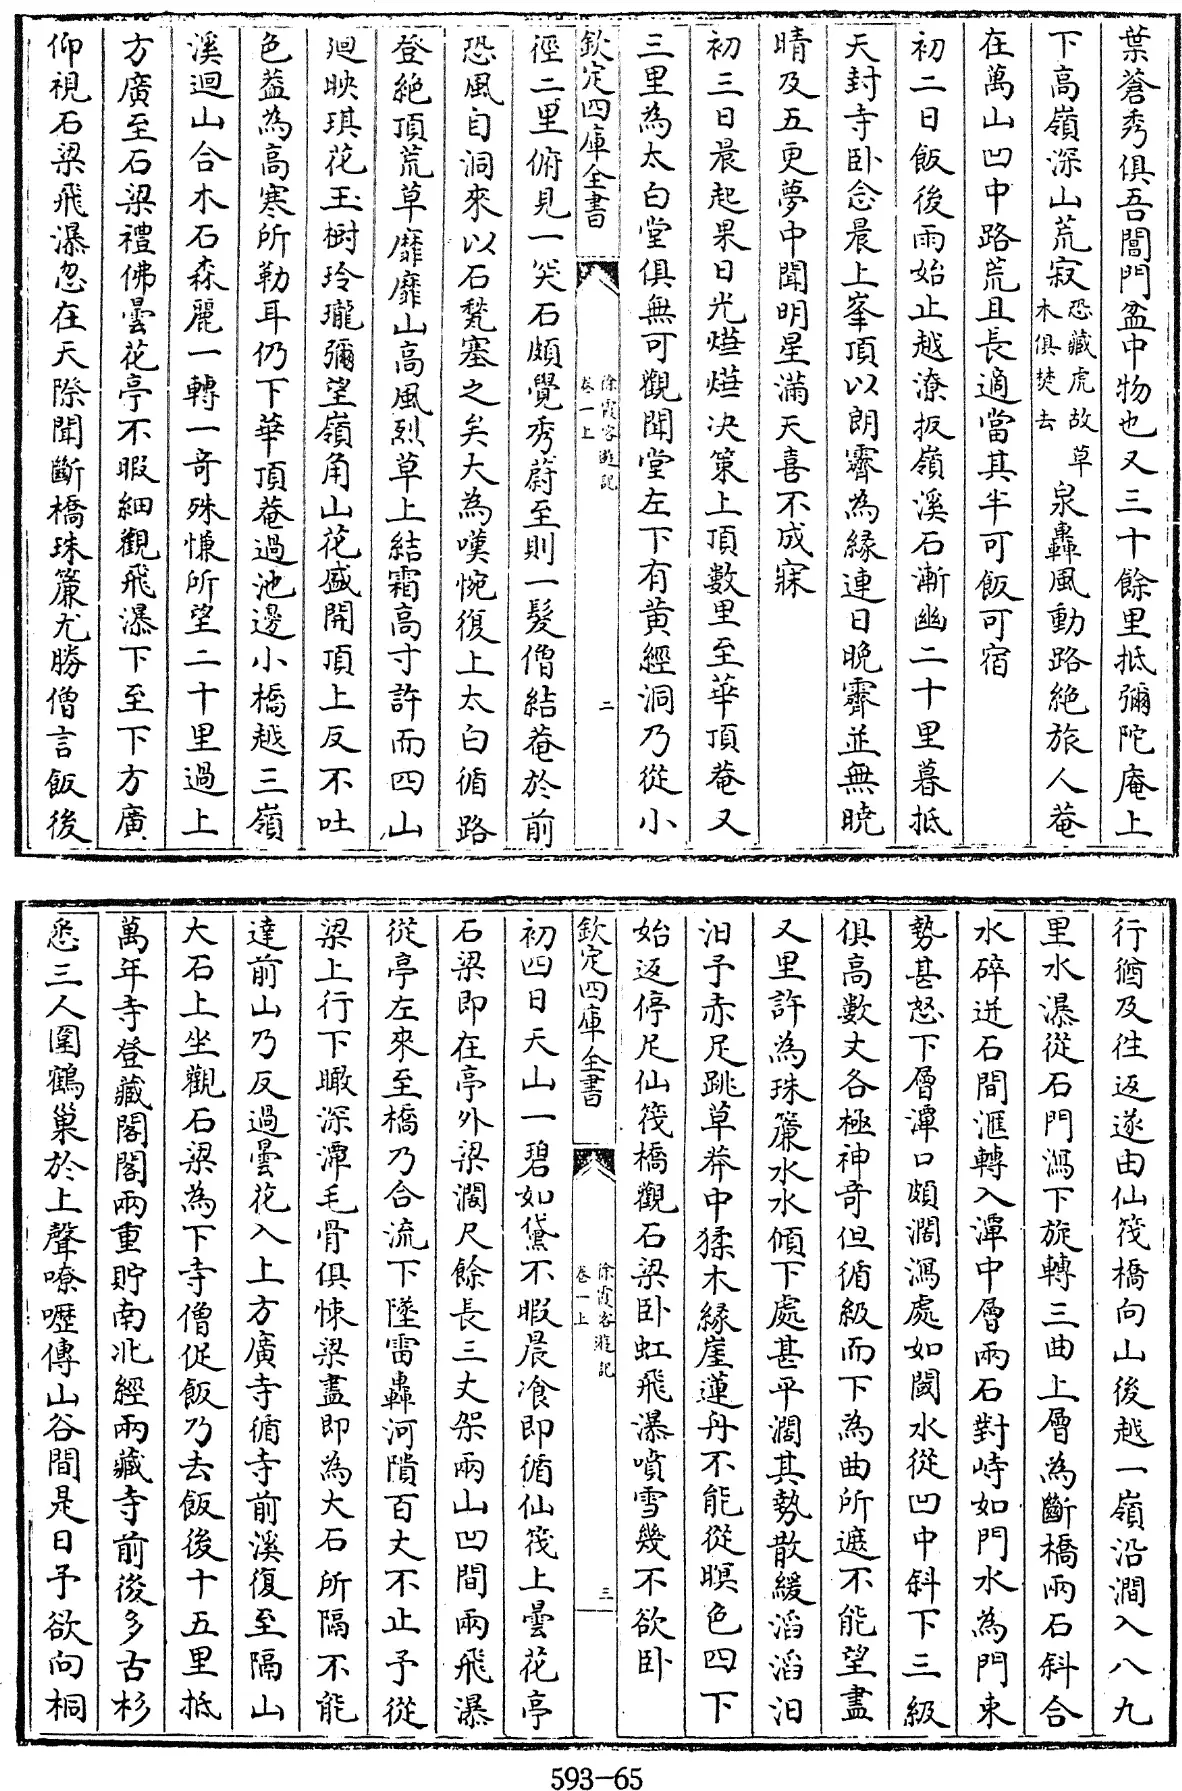 葉蒼秀俱吾閶門盆中物也又三十餘里抵彌陀庵上
下高嶺深山荒寂恐藏虎故草木俱焚去泉轟風動路絶旅人菴
在萬山凹中路荒且長適當其半可飯可宿
初二日飯後雨始止越潦扳嶺溪石漸幽二十里暮抵
天封寺卧念晨上峯頂以朗霽為緣連日晚霽並無曉
晴及五更夢中聞明星滿天喜不成寐
初三日晨起果日光燁燁決策上頂數里至華頂菴又
三里為太白堂俱無可觀聞堂左下有黄經洞乃從小
欽定四庫全書
徐霞客遊記
卷一上
二
徑二里俯見一突石頗覺秀蔚至則一髮僧結菴於前
恐風自洞來以石甃塞之矣大為嘆惋復上太白循路
登絶頂荒草靡靡山高風烈草上結霜高寸許而四山
廻映琪花玉樹玲瓏彌望嶺角山花盛開頂上反不吐
色葢為高寒所勒耳仍下華頂菴過池邊小橋越三嶺
溪迴山合木石森麗一轉一奇殊慊所望二十里過上
方廣至石梁禮佛曇花亭不暇細觀飛瀑下至下方廣
仰視石梁飛瀑忽在天際聞斷橋珠簾尤勝僧言飯後
行猶及往返遂由仙筏橋向山後越一嶺沿澗入八九
里水瀑從石門瀉下旋轉三曲上層為斷橋兩石斜合
水碎迸石間滙轉入潭中層兩石對峙如門水為門束
勢甚怒下層潭口頗濶瀉處如閾水從凹中斜下三級
俱高數丈各極神奇但循級而下為曲所遮不能望盡
又里許為珠簾水水傾下處甚平濶其勢散緩滔滔汨
汨予赤足跳草莽中揉木緣崖蓮舟不能從暝色四下
始返停足仙筏橋觀石梁卧虹飛瀑噴雪幾不欲卧
欽定四庫全書
徐霞客遊記
卷一上
三
初四日天山一碧如黛不暇晨飡即循仙筏上曇花亭
石梁即在亭外梁濶尺餘長三丈架兩山凹間兩飛瀑
從亭左來至橋乃合流下墜雷轟河隤百丈不止予從
梁上行下瞰深潭毛骨俱悚梁盡即為大石所隔不能
達前山乃反過曇花入上方廣寺循寺前溪復至隔山
大石上坐觀石梁為下寺僧促飯乃去飯後十五里抵
萬年寺登藏閣閣兩重貯南北經兩藏寺前後多古杉
悉三人圍鶴巢於上聲嘹嚦傳山谷間是日予欲向桐
593-65